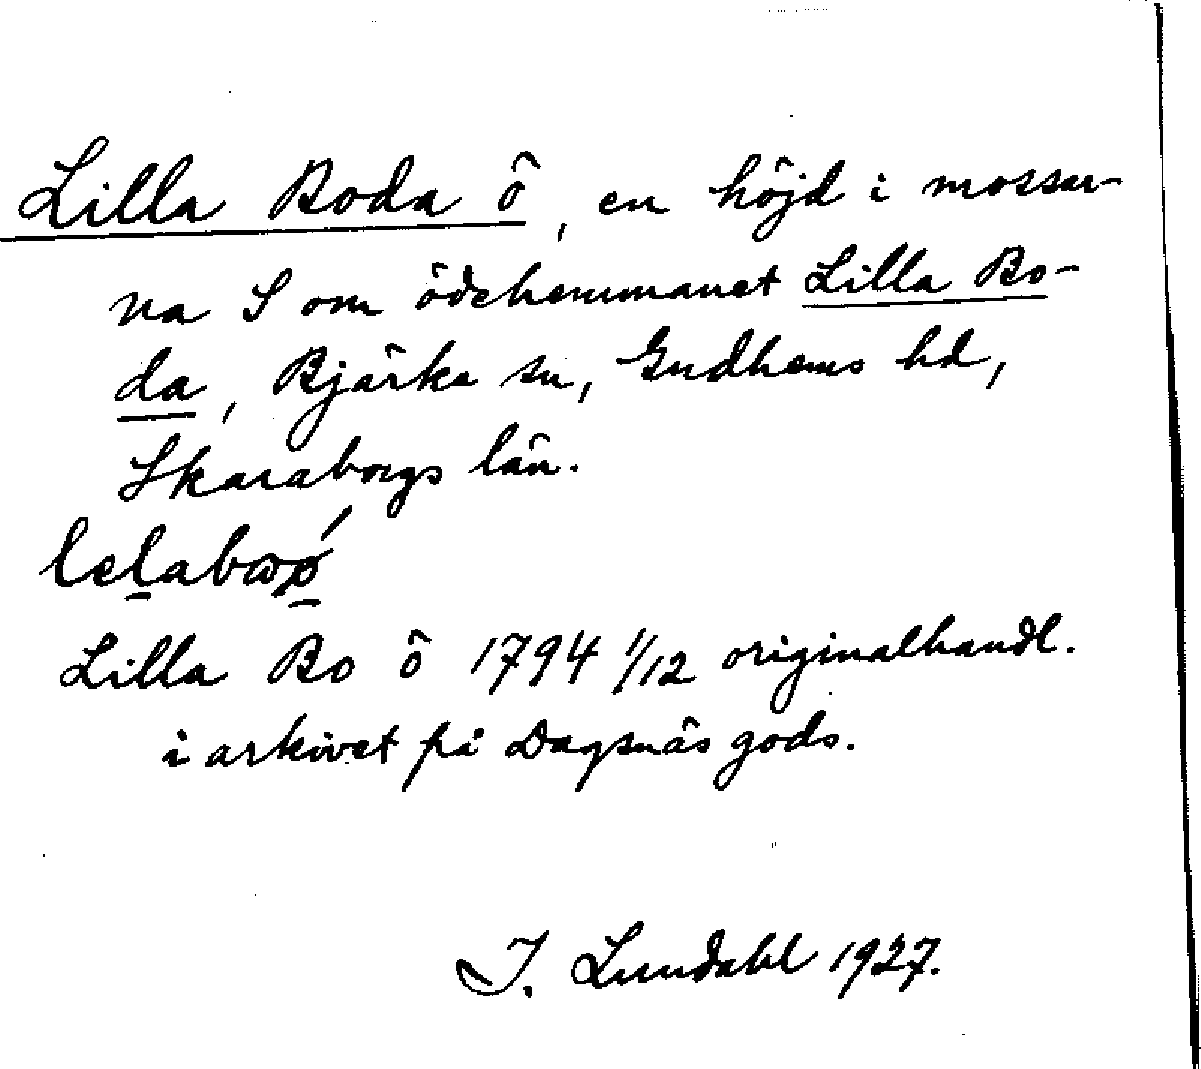 Lilla Boda ö, en höjd i mossar-
na S om ödehemmanet Lilla Bo-
da, Bjärka sn, Gudhems hd,
Skaraborgs län.
Lilla Bo ö 1794 1/12 originalhandl.
i arkivet på Dagsnäs gods.
I. Lundahl 1927.